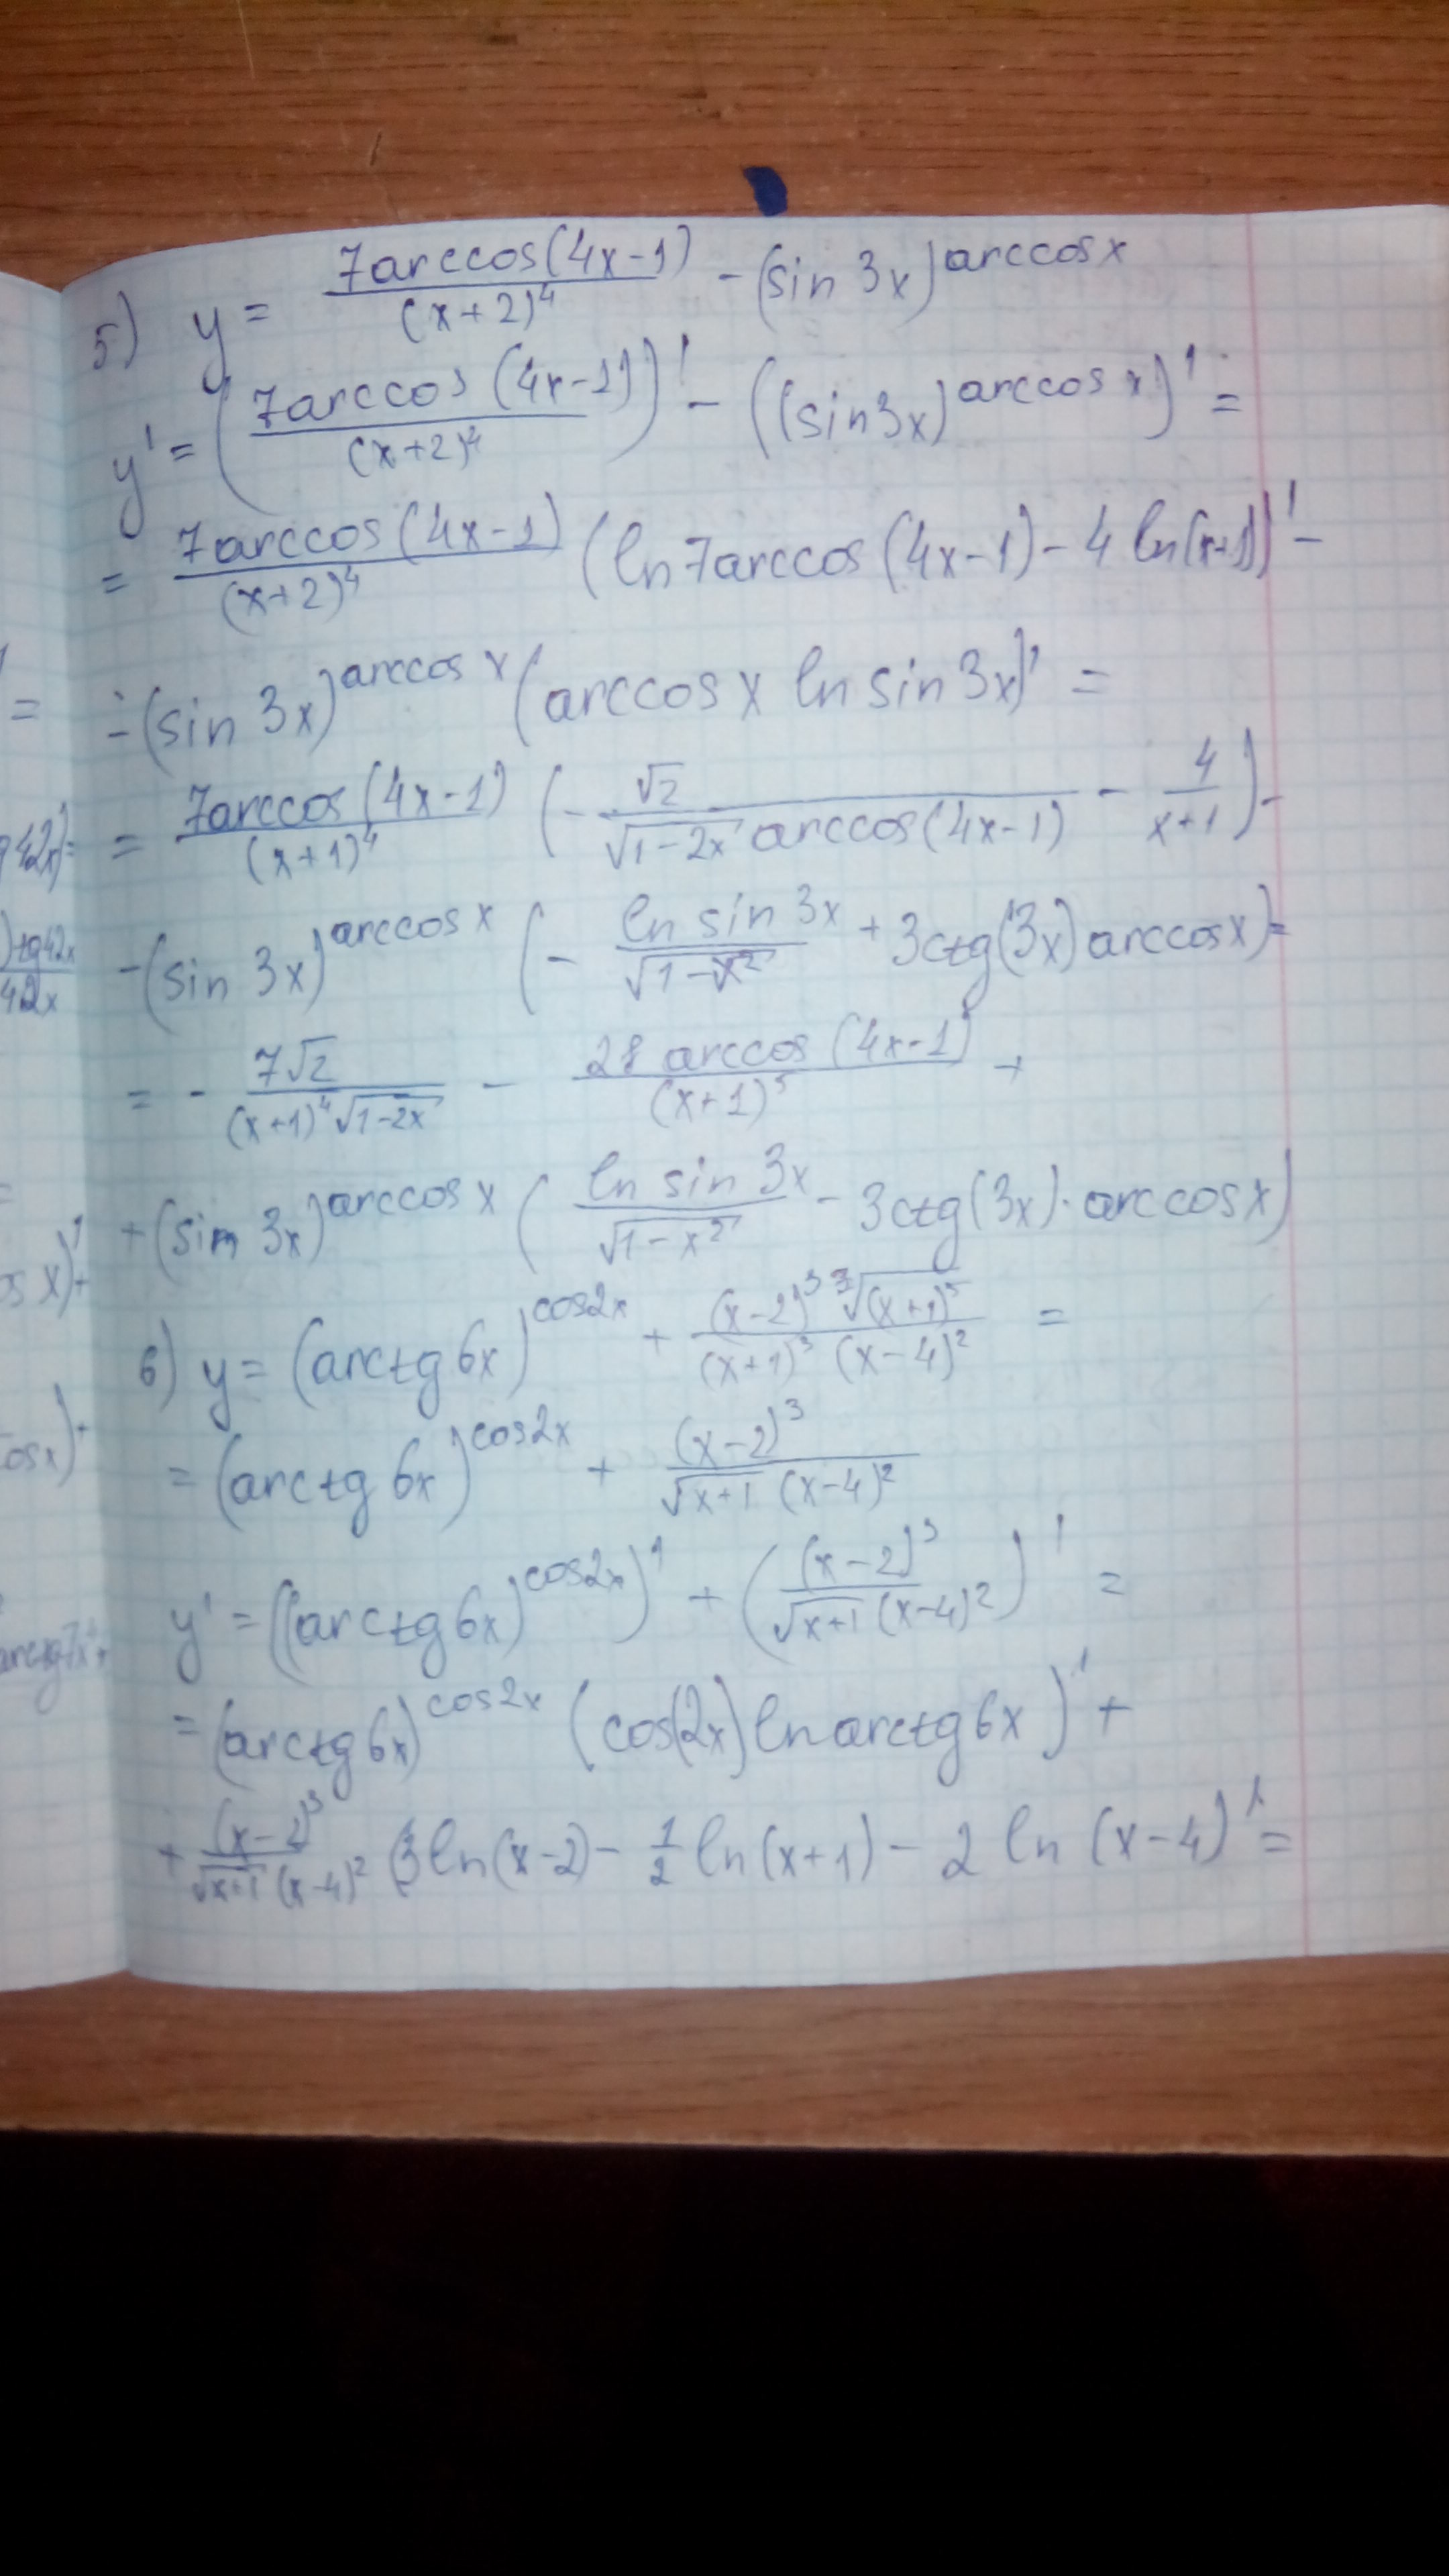 5) y = 7arccos(4x-1)/(x+2)^4 - (sin 3x)^arccosx
y' = (7arccos(4x-1)/(x+2)^4)' - ((sin3x)^arccos x)' =
= 7arccos(4x-1)/(x+2)^4 (ln7arccos(4x-1) - 4 ln(x+1))' -
- (sin 3x)^arccos x (arccos x ln sin 3x)' =
= 7arccos(4x-1)/(x+1)^4 (- √2/(√(1-2x) arccos(4x-1)) - 4/(x+1)) -
- (sin 3x)^arccosx (- ln sin 3x/√(1-x²) + 3ctg(3x) arccosx) =
= - 7√2/((x+1)^4 √(1-2x)) - 28 arccos (4x-1)/(x+1)^5 +
+ (sin 3x)^arccos x (ln sin 3x/√(1-x²) - 3ctg(3x) · arccosx)
6) y = (arctg 6x)^cos2x + (x-2)³ ∛(x+1)^5/((x+1)³ (x-4)²) =
= (arctg 6x)^cos2x + (x-2)³/(√(x+1) (x-4)²)
y' = ((arctg6x)^cos2x)' + ((x-2)³/(√(x+1) (x-4)²))' =
= (arctg6x)^cos2x (cos(2x) ln arctg6x)' +
+ (x-2)³/(√(x+1) (x-4)²) (3ln(x-2) - 1/2 ln(x+1) - 2 ln (x-4)' =